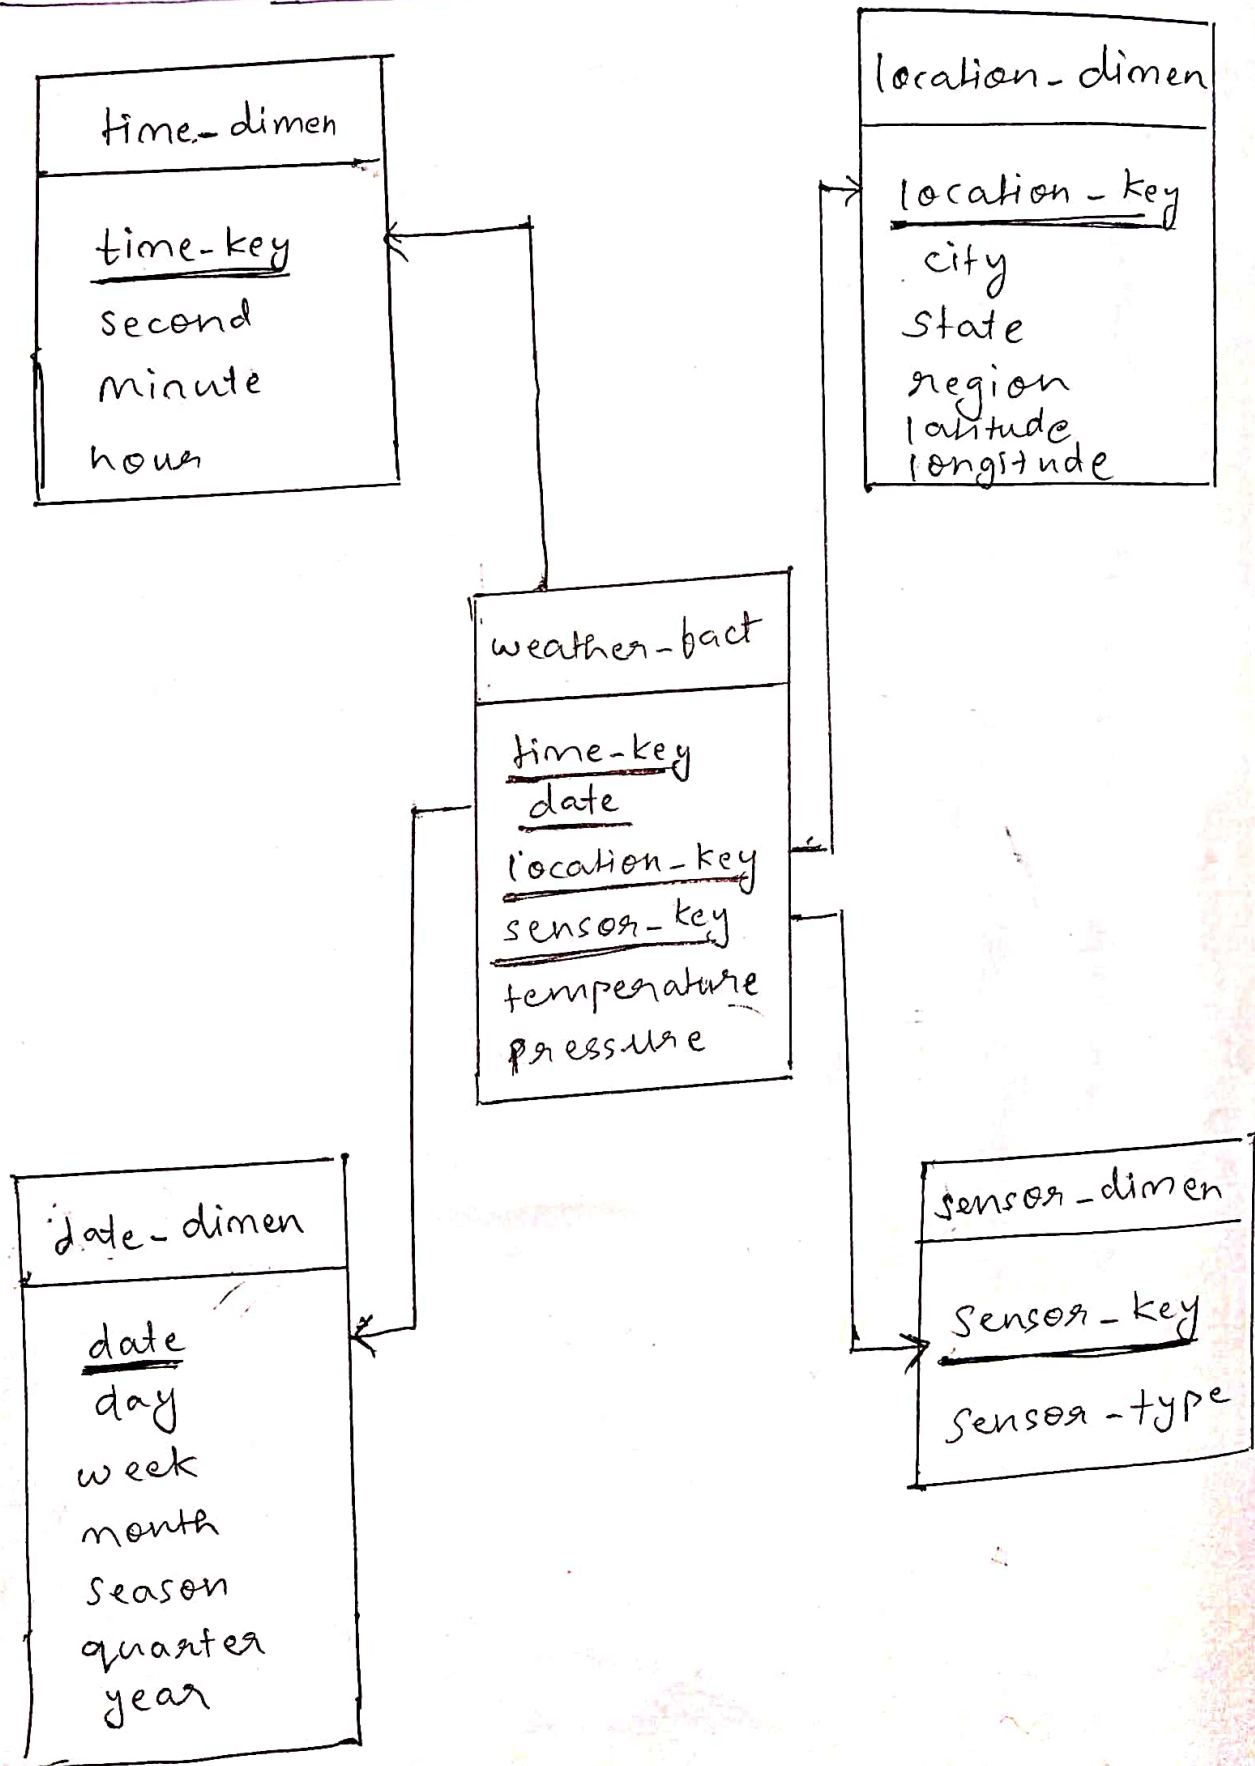 time_dimen
time-key
second
minute
hour
location_dimen
location_key
city
state
region
latitude
longitude
weather_fact
time-key
date
location_key
sensor_key
temperature
pressure
date_dimen
date
day
week
month
season
quarter
year
sensor_dimen
sensor_key
sensor_type